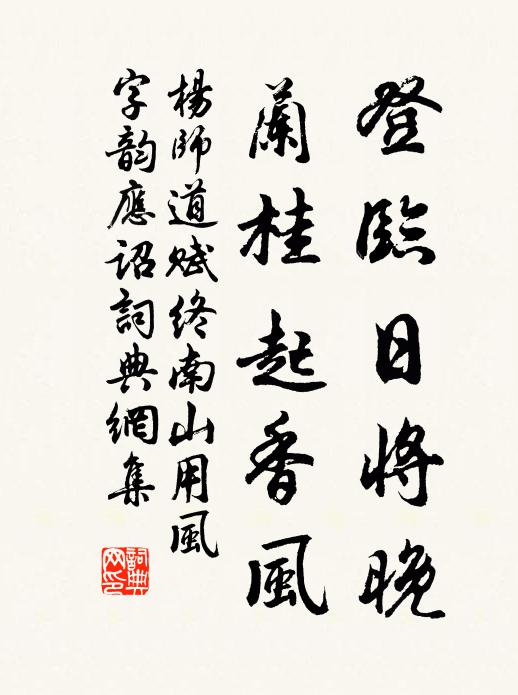 登臨日將晚
蘭桂起香風
楊師道賦終南山用風
字韵應詔詞典網集
詞典
网印